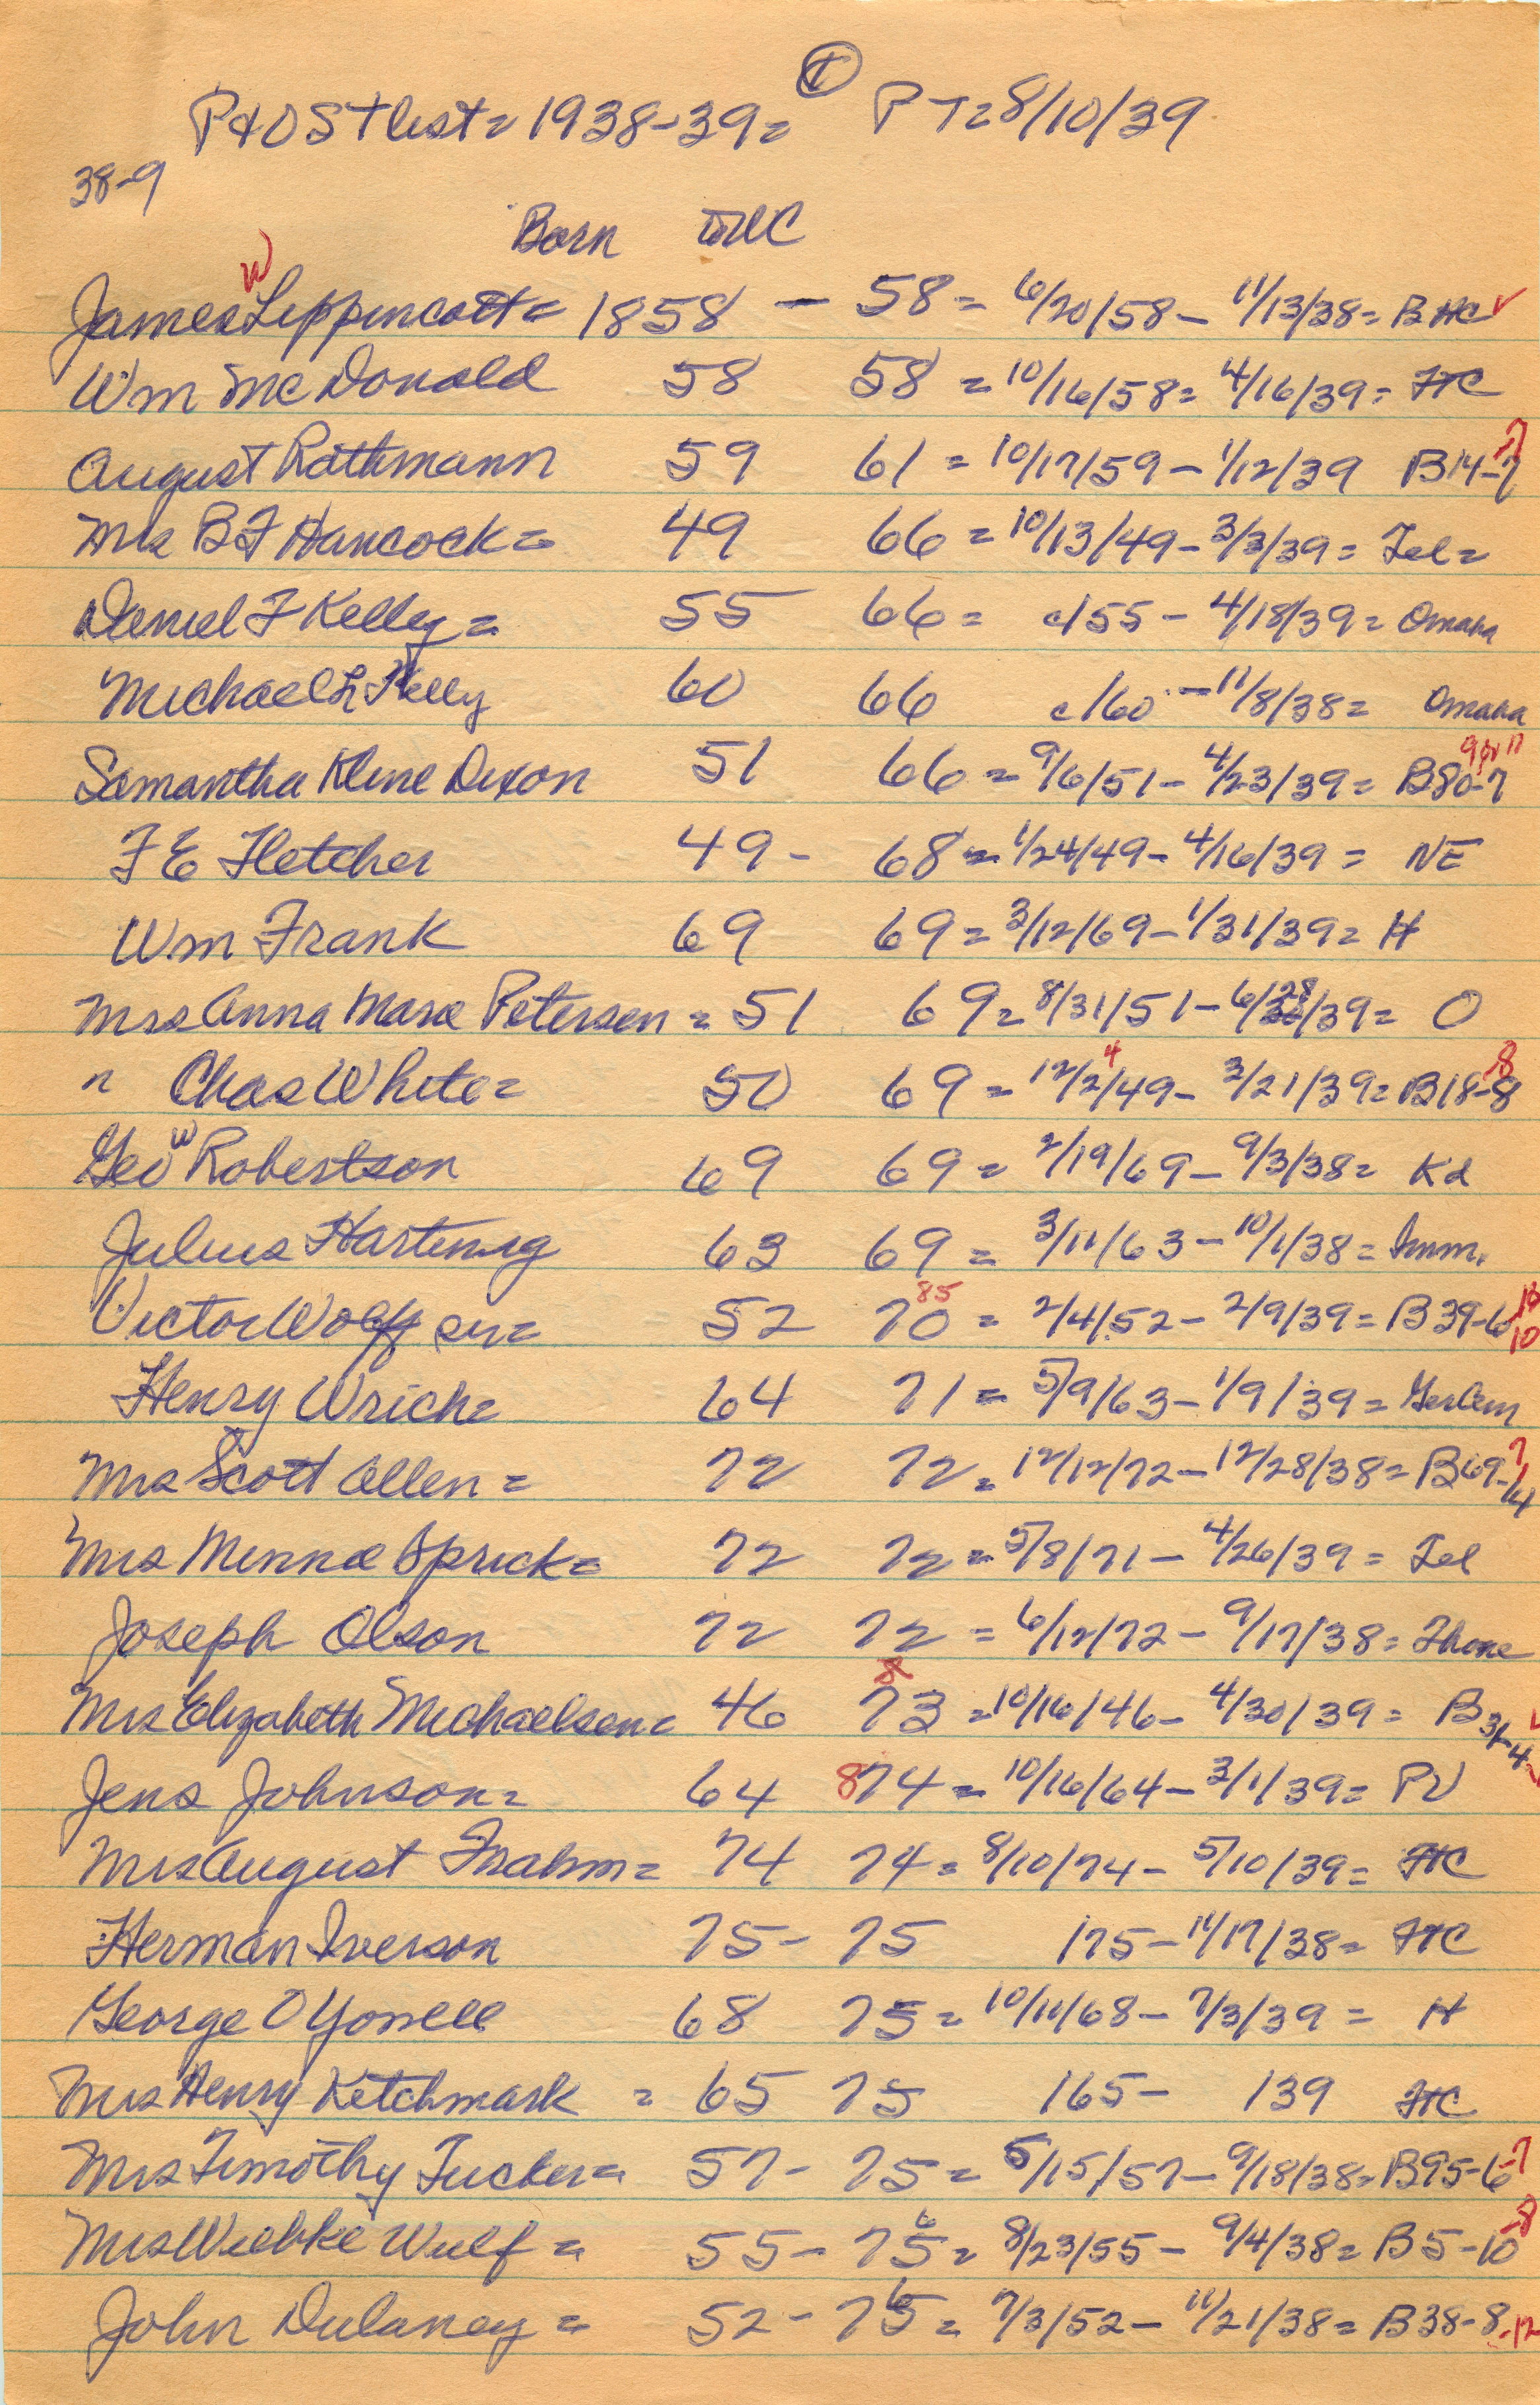 P & O S T list = 1938-39 = P T = 8/10/39
38-9
Born WC
James W Lippincott = 1858 - 58 = 6/20/58 - 11/13/38 = B HC
Wm McDonald 58 58 = 10/16/58 = 4/16/39 = HC
August Rathmann 59 61 = 10/17/59 - 1/12/39 B 14-7 7
Mrs B F Hancock = 49 66 = 10/13/49 - 3/3/39 = Tel =
Daniel F Kelly = 55 66 = c/55 - 4/18/39 = Omaha
Michael L Kelly 60 66 c/60 - 11/8/38 = Omaha
Samantha Kline Dixon 51 66 = 9/6/51 - 4/23/39 = B80-7 9 or 11
F E Fletcher 49 - 68 = 1/24/49 - 4/16/39 = NE
Wm Frank 69 69 = 3/12/69 - 1/31/39 = H
Mrs Anna Marie Petersen = 51 69 = 8/31/51 - 6/28/39 = O
" Chas White = 50 69 = 12/24/49 - 3/21/39 = B18-8 8
Geo W Robertson 69 69 = 2/19/69 - 9/3/38 = Kd
Julius Hartwig 63 69 = 3/11/63 - 10/1/38 = Imm.
Victor Wolff sr = 52 70 85 = 2/4/52 - 2/9/39 = B 39-6 10
Henry Wrich = 64 71 = 5/9/63 - 1/9/39 = Ger Cem
Mrs Scott Allen = 72 72 = 12/12/72 - 12/28/38 = B69-14 7
Mrs Minnie Sprick = 72 72 = 5/8/71 - 4/26/39 = Tel
Joseph Olson 72 72 = 6/12/72 - 9/17/38 = Thone
Mrs Elizabeth Michaelsen = 46 73 = 10/16/46 - 4/30/39 = B 31-4
Jens Johnson = 64 8 74 = 10/16/64 - 3/1/39 = PV
Mrs August Frahm = 74 74 = 8/10/74 - 5/10/39 = HC
Herman Iverson 75 - 75 175 - 11/17/38 = HC
George O Yowell 68 75 = 10/11/68 - 7/3/39 = H
Mrs Henry Ketchmark = 65 75 165 - 139 HC
Mrs Timothy Tucker = 57 - 75 = 5/15/57 - 9/18/38 = B95-6 -7
Mrs Wiebke Wulf = 55 - 75 6 = 8/23/55 - 9/4/38 = B5-10 -8
John Dulaney = 52 - 75 6 = 7/3/52 - 11/21/38 = B38-8 -12